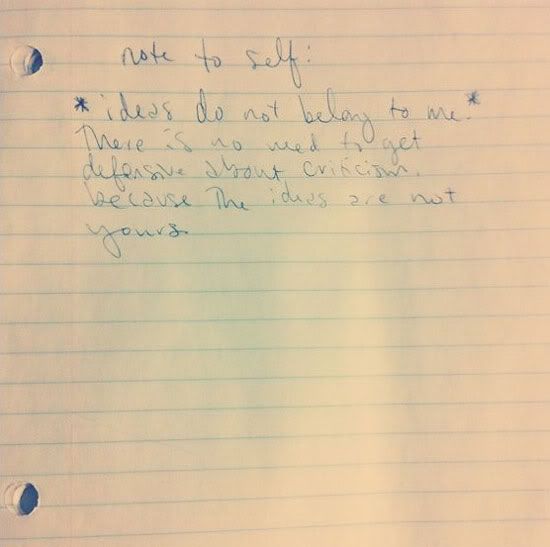 note to self:
*ideas do not belong to me.*
There is no need to get
defensive about criticism.
because The ideas are not
yours.